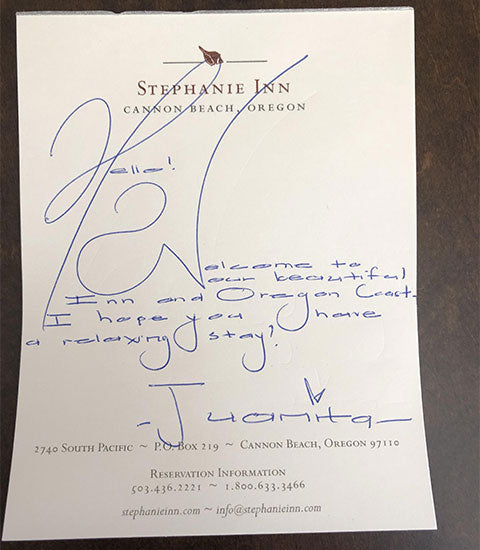 Stephanie Inn
Cannon Beach, Oregon
Hello!
Welcome to
our beautiful
Inn and Oregon Coast.
I hope you have
a relaxing stay!
- Juanita -
2740 South Pacific ~ P.O. Box 219 ~ Cannon Beach, Oregon 97110
Reservation Information
503.436.2221 ~ 1.800.633.3466
stephanieinn.com ~ info@stephanieinn.com